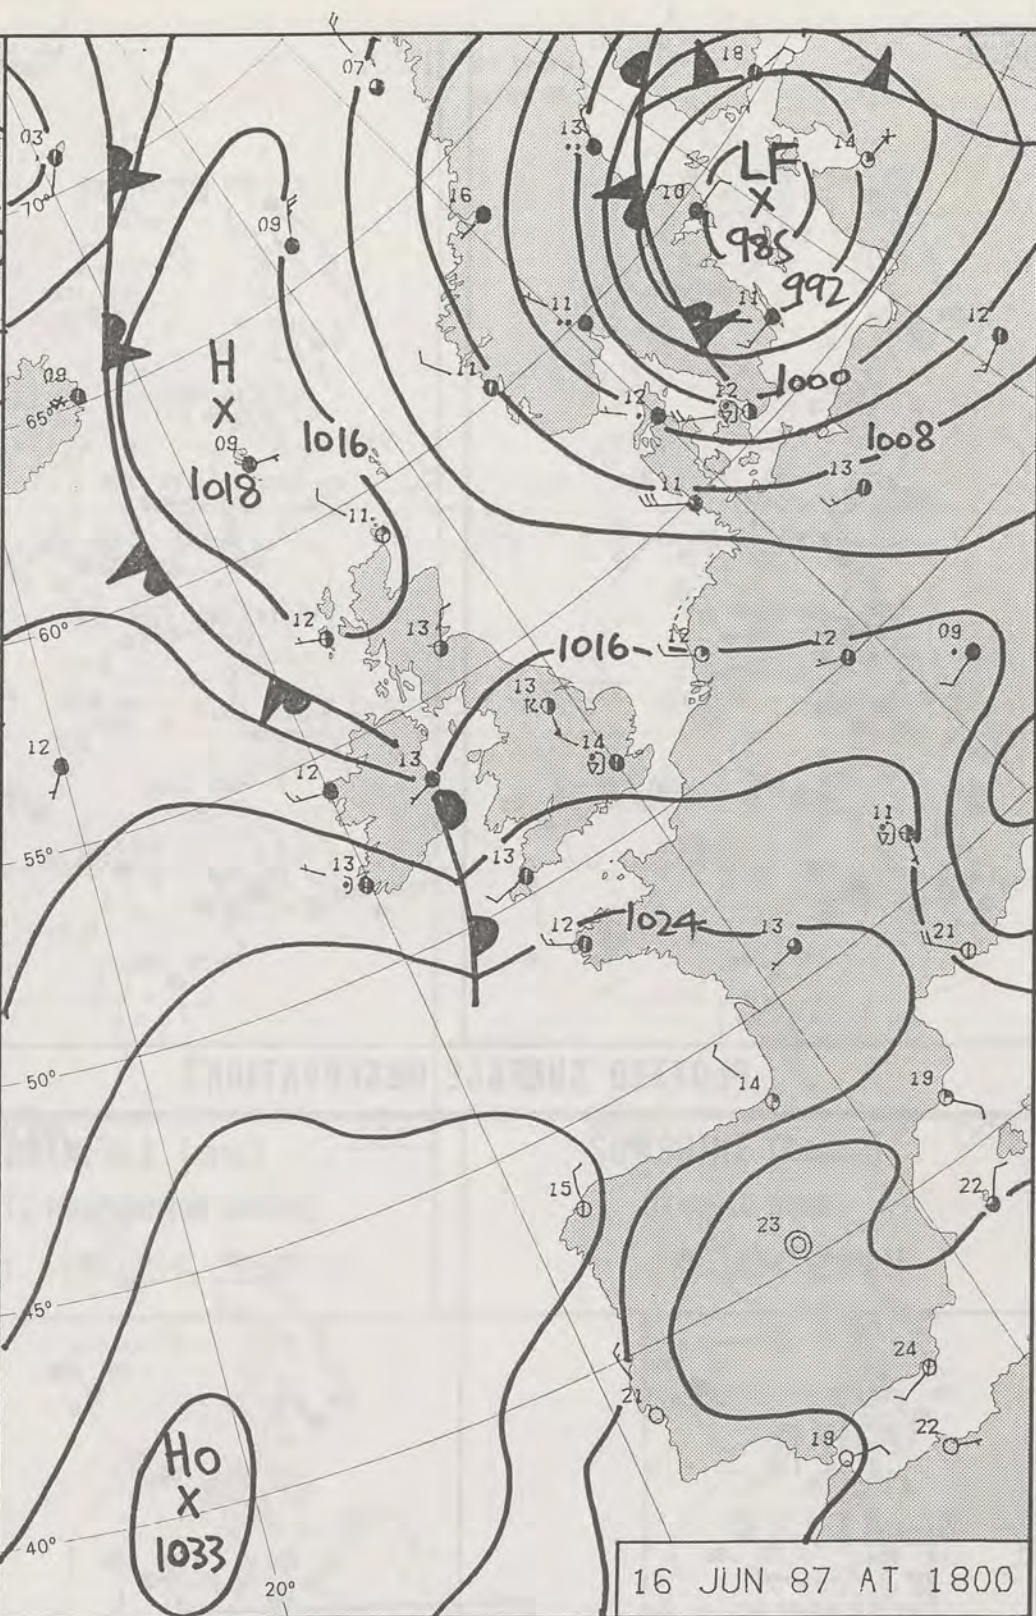 07
18
03
13
14
70°
16
10
LF
X
985
09
992
11
11
12
H
X
09
65°
11
12
12
1000
1016
09
1018
1008
13
11
11
12
13
60°
1016
12
12
09
13
12
14
12
13
11
55°
13
13
12
1024
13
21
50°
14
19
15
22
23
45°
24
21
22
19
HO
X
1033
40°
20°
16 JUN 87 AT 1800